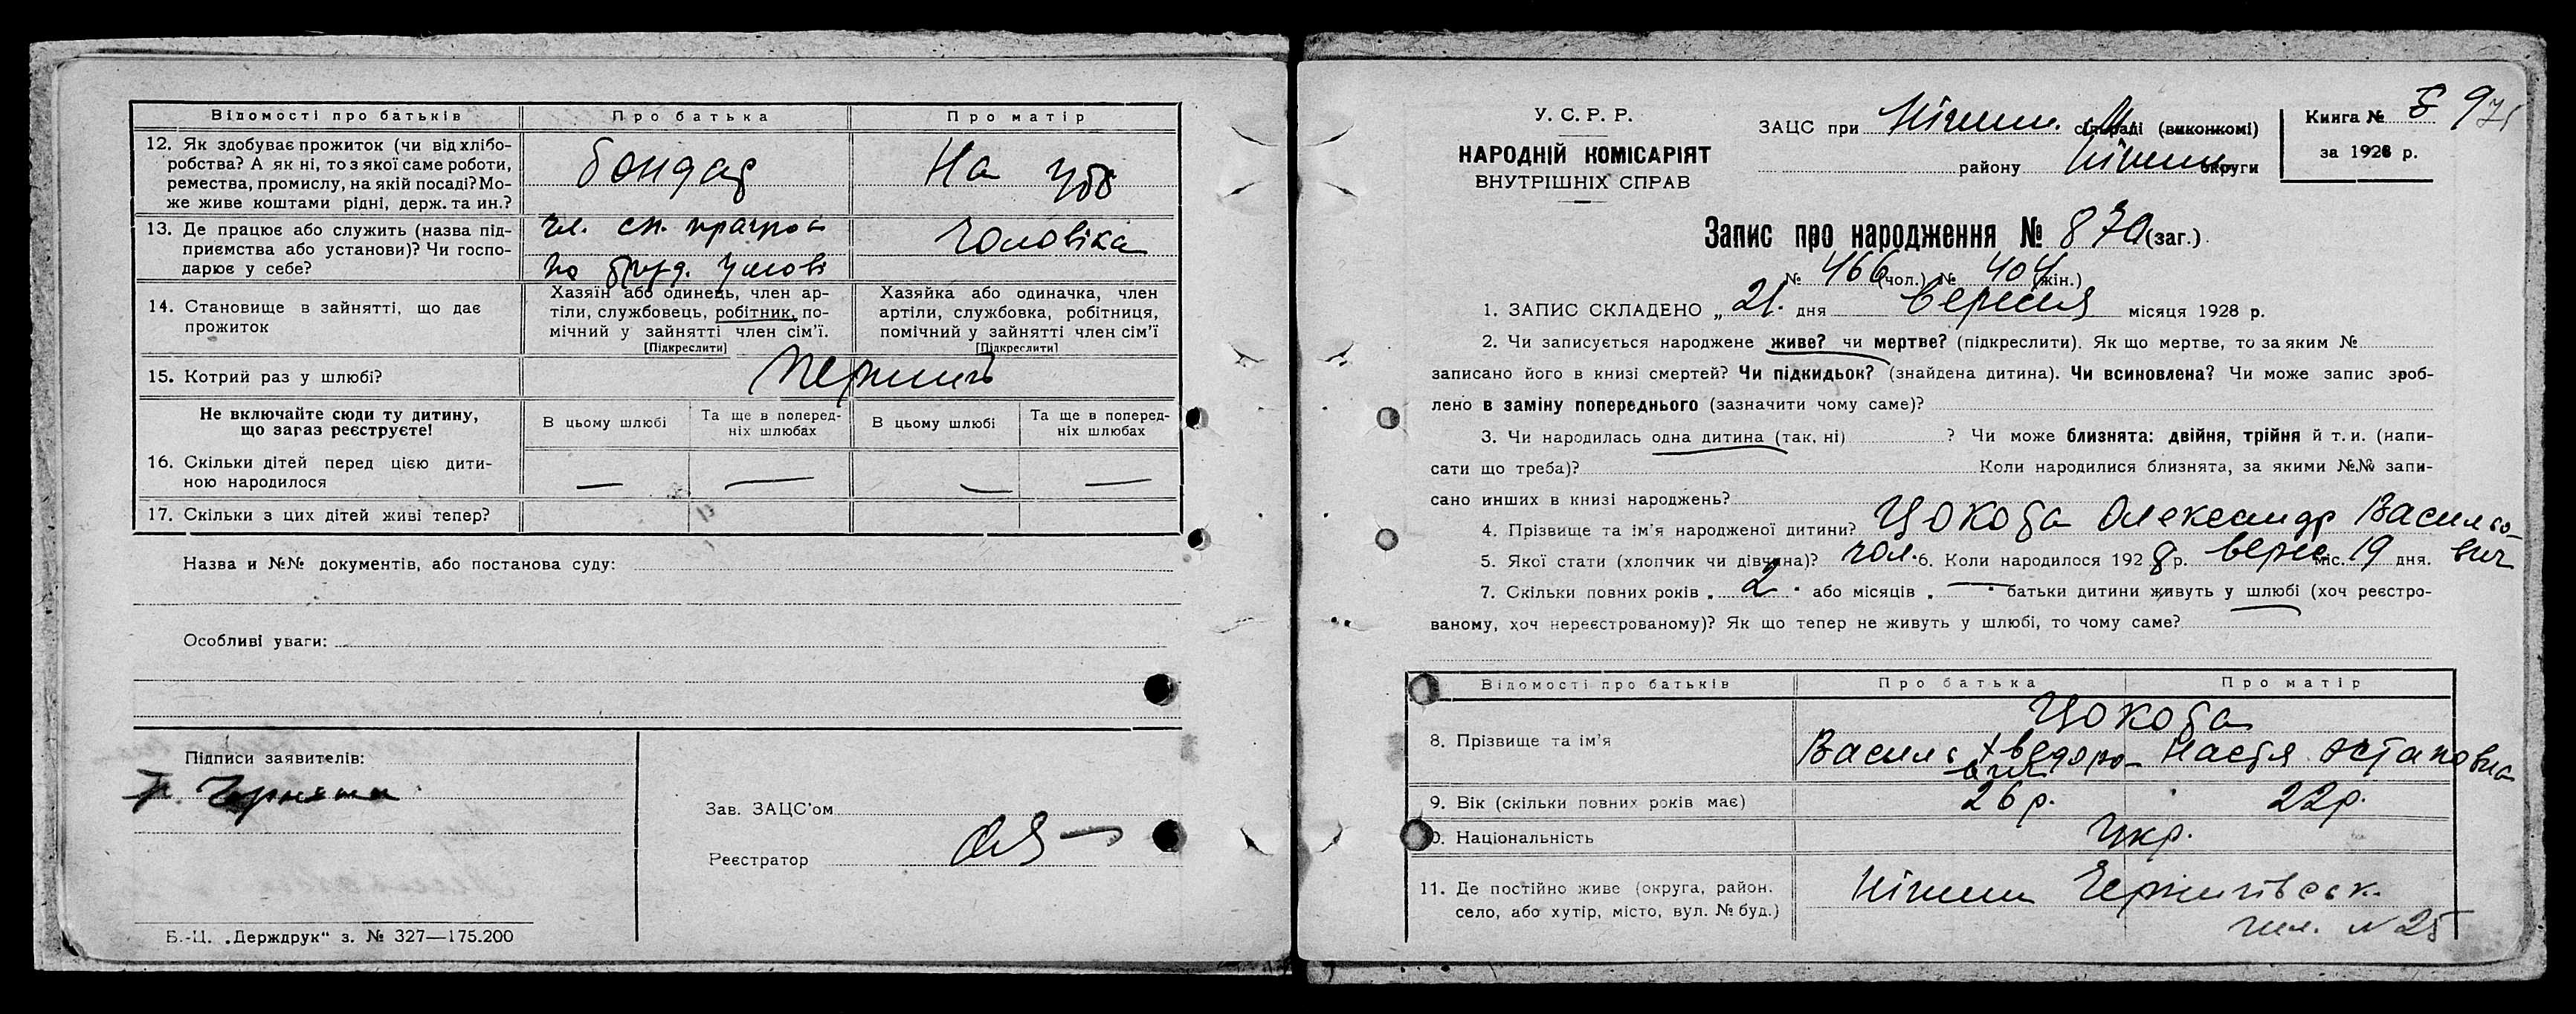 Відомості про батьків
Про батька
Про матір
12. Як здобуває прожиток (чи від хлібо-
робства? А як ні, то з якої саме роботи,
ремества, промислу, на якій посаді? Мо-
же живе коштами рідні, держ. та ин.?
бондар
На утр
13. Де працює або служить (назва під-
приємства або установи)? Чи госпо-
дарює у себе?
чл. сп.
по труд. умові
чоловіка
14. Становище в зайнятті, що дає
прожиток
Хазяїн або одинець, член ар-
тіли, службовець, робітник, по-
мічний у зайнятті член сім'ї.
[Підкреслити]
Хазяйка або одиначка, член
артіли, службовка, робітниця,
помічний у зайнятті член сім'ї
[Підкреслити]
15. Котрий раз у шлюбі?
Не включайте сюди ту дитину,
що загаз реєструєте!
В цьому шлюбі
Та ще в поперед-
ніх шлюбах
В цьому шлюбі
Та ще в поперед-
ніх шлюбах
16. Скільки дітей перед цією дити-
ною народилося
— — — —
17. Скільки з цих дітей живі тепер?
Назва и №№ документів, або постанова суду:
Особливі уваги:
Підписи заявителів:
Зав. ЗАЦС'ом
Реєстратор
Б.-Ц. „Держдрук" з. № 327—175.200
У. С. Р. Р.
НАРОДНІЙ КОМІСАРІЯТ
ВНУТРІШНІХ СПРАВ
ЗАЦС при Ніжин. сільраді (виконкомі)
району Ніжин округи
Книга № 5
за 1928 р.
Запис про народження № 870 (заг.)
№ 466 (чол.) № 404 (жін.)
1. ЗАПИС СКЛАДЕНО „ 21. дня вересня місяця 1928 р.
2. Чи записується народжене живе? чи мертве? (підкреслити). Як що мертве, то за яким №
записано його в книзі смертей? Чи підкидьок? (знайдена дитина). Чи всиновлена? Чи може запис зроб-
лено в заміну попереднього (зазначити чому саме)?
3. Чи народилась одна дитина (так, ні) ? Чи може близнята: двійня, трійня й т. и. (напи-
сати що треба)? Коли народилися близнята, за якими №№ запи-
сано инших в книзі народжень?
4. Прізвище та ім'я народженої дитини? Цокота Олександр Васильо-
вич
5. Якої стати (хлопчик чи дівчина)? чол. 6. Коли народилося 1928 р. верес міс. 19 дня.
7. Скільки повних років „ 2 " або місяців „ — " батьки дитини живуть у шлюбі (хоч реєстро-
ваному, хоч нереєстрованому)? Як що тепер не живуть у шлюбі, то чому саме?
Відомості про батьків
Про батька
Про матір
8. Прізвище та ім'я
Цокота
Василь Хведоро-
вич
Настя Остаповна
9. Вік (скільки повних років має)
26 р.
22 р.
10. Національність
Укр.
11. Де постійно живе (округа, район.
село, або хутір, місто, вул. № буд.)
Ніжин Чернигівськ.
шл. № 25